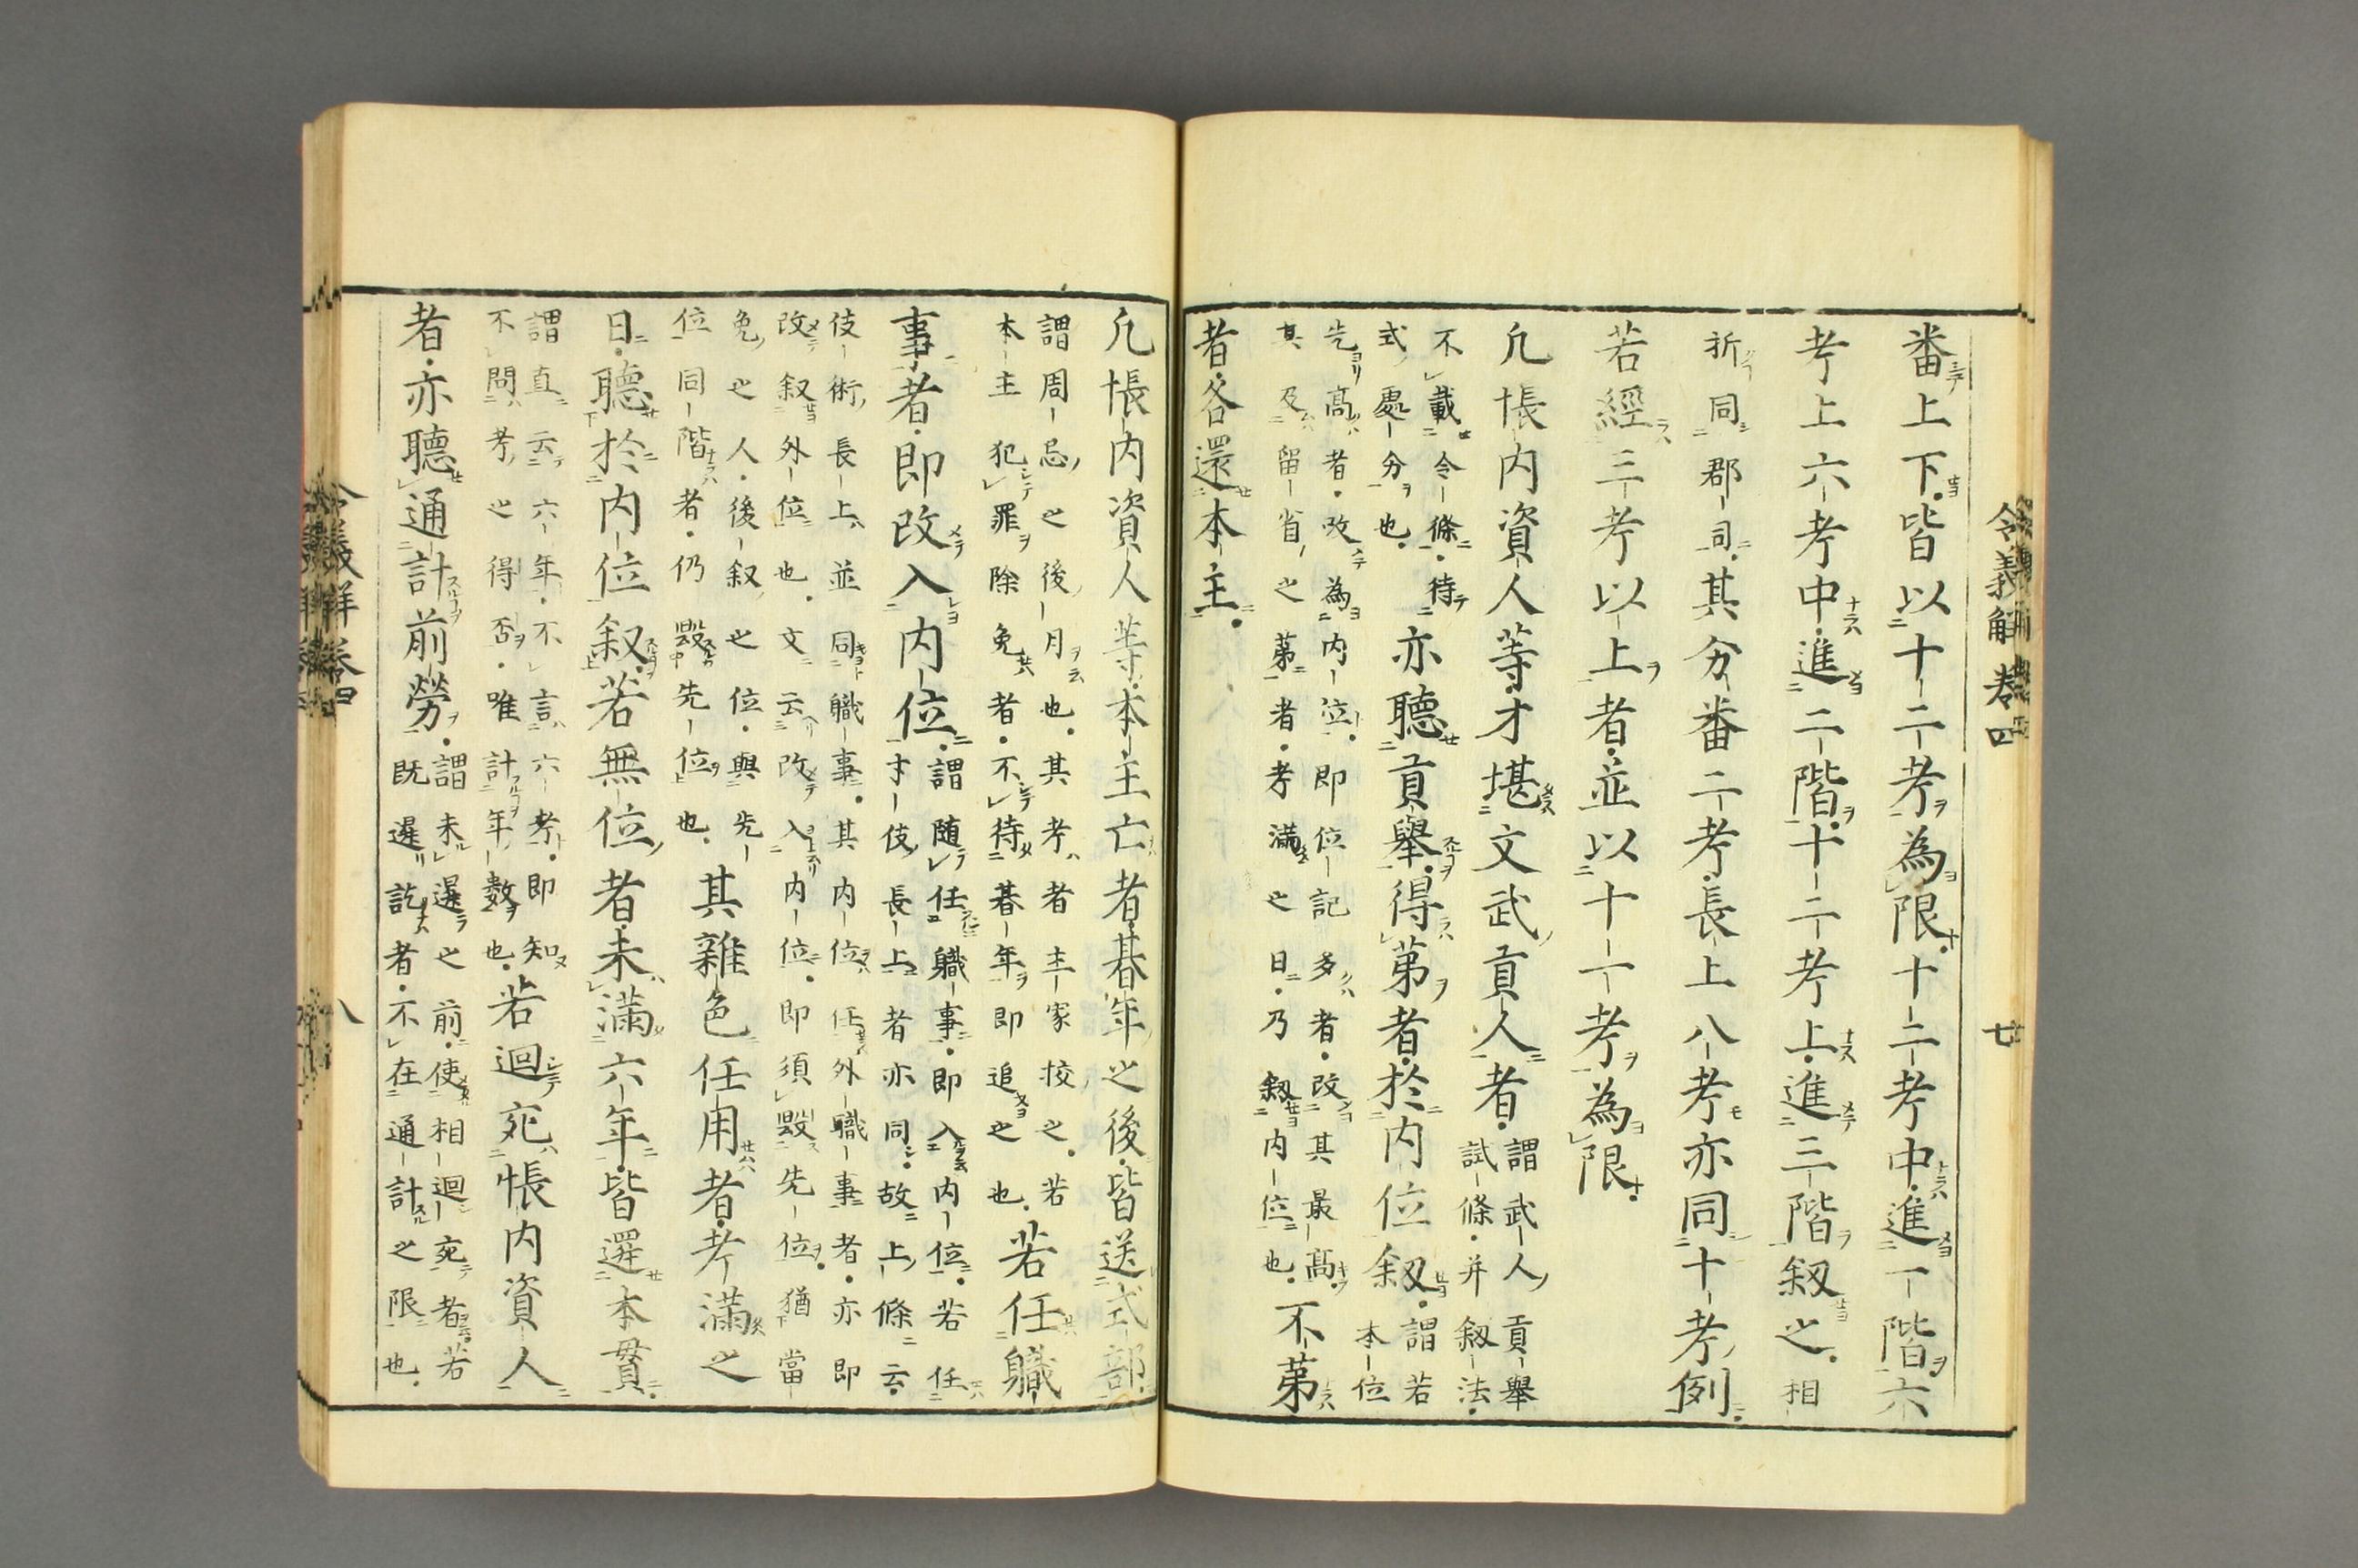 令義解卷四
七
番上下皆以十二考為限十二考中進一階六
考上六考中進二階十二考上進三階叙之相
折同郡司其分番二考長上八考亦同十考例
若經三考以上者並以十一考為限
凡帳内資人等才堪文武貢人者謂武人貢舉
試條并叙法
不載令條待
式處分也亦聽貢舉得第者於内位叙謂若
本位
先高者改為内位即位記多者改其最高
其及留省之第者考滿之日乃叙内位也不第
者各還本主
凡帳内資人等本主亡者朞年之後皆送式部
謂周忌之後月也其考者主家校之若
本主犯罪除免者不待朞年即追之也若任職
事者即改入内位謂随任職事即入内位若任
才伎長上者亦同故上條云
伎術長上並同職事其内位任外職事者亦即
改叙外位也文云改入内位即須毀先位猶當
免之人後叙之位與先
位同階者仍毀先位也其雜色任用者考滿之
日聽於内位叙若無位者未滿六年皆還本貫
謂直云六年不言六考即知
不問考之得否唯計年數也若迴充帳内資人
者亦聽通計前勞謂未還之前使相迴充者若
既還訖者不在通計之限也
令義解卷四
八